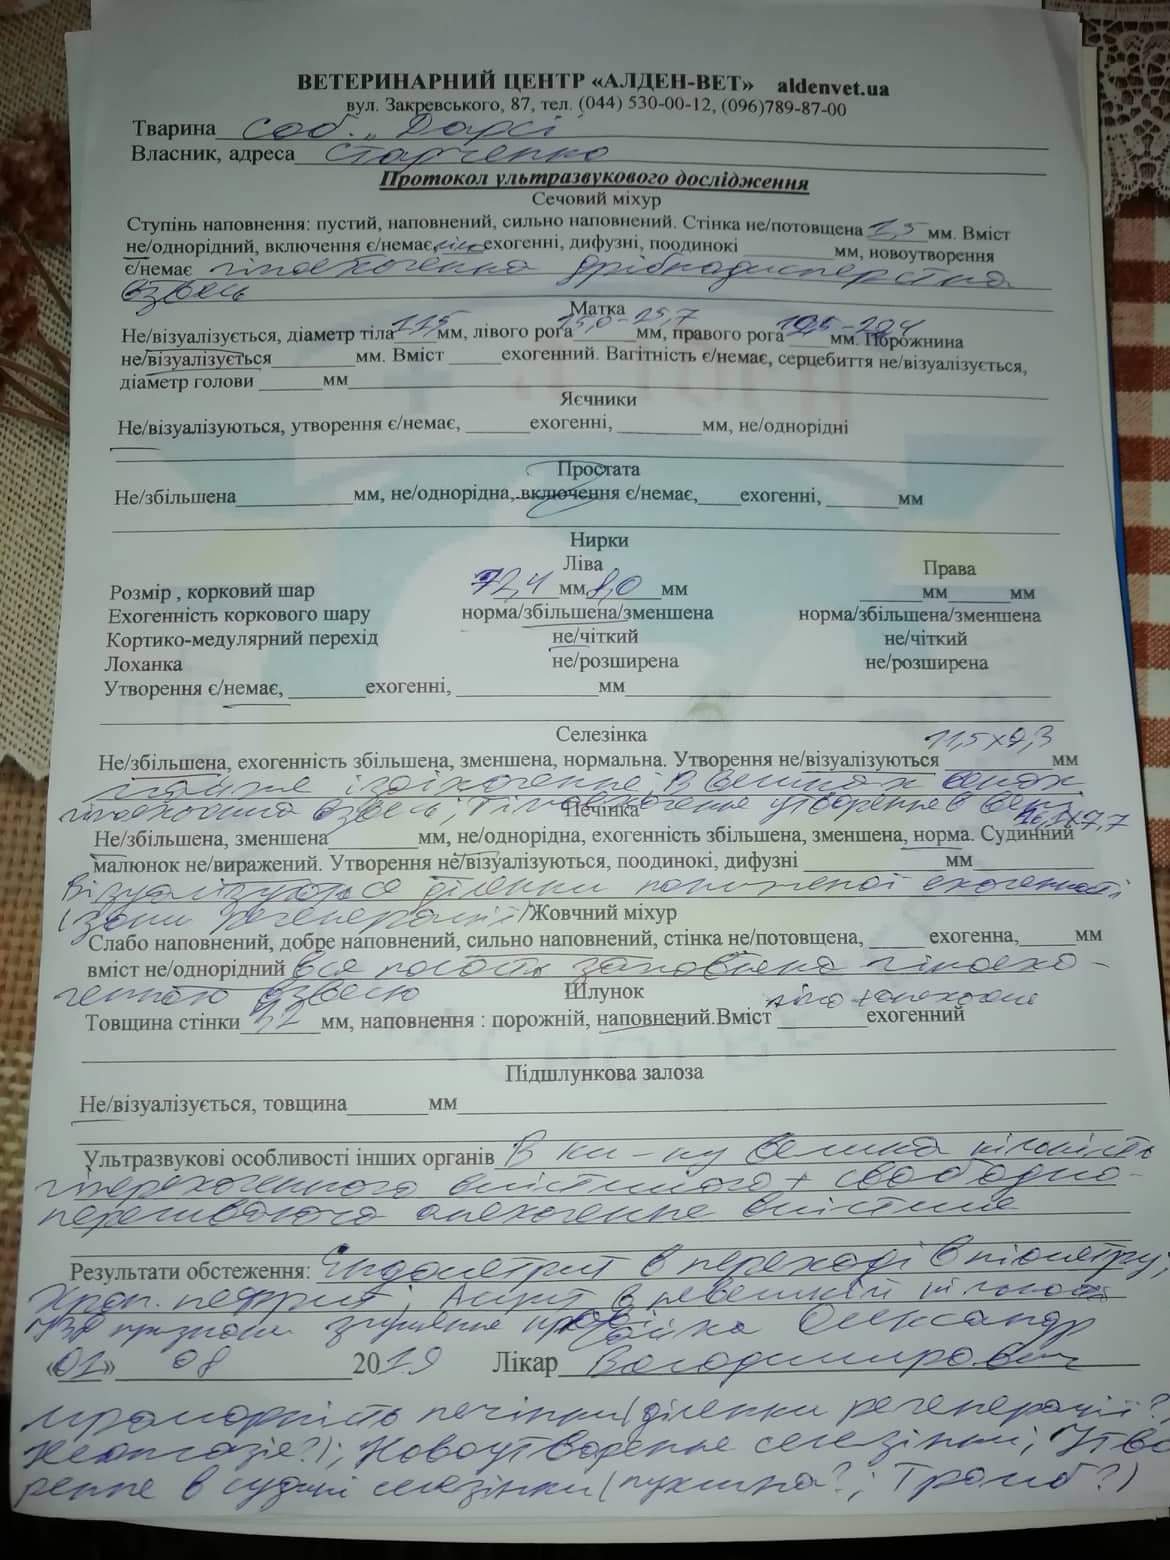 ВЕТЕРИНАРНИЙ ЦЕНТР «АЛДЕН-ВЕТ» aldenvet.ua
вул. Закревського, 87, тел. (044) 530-00-12, (096)789-87-00
Тварина соб. "Дарсі"
Власник, адреса Старченко
Протокол ультразвукового дослідження
Сечовий міхур
Ступінь наповнення: пустий, наповнений, сильно наповнений. Стінка не/потовщена 1,5 мм. Вміст
не/однорідний, включення є/немає, гіпоехогенні, дифузні, поодинокі ______ мм, новоутворення
є/немає гіпоехогенна дрібнодисперстна
взвесь
Матка
Не/візуалізується, діаметр тіла 11,5 мм, лівого рога 15,0-25,7 мм, правого рога 19,5-20,4 мм. Порожнина
не/візуалізується ______ мм. Вміст ______ ехогенний. Вагітність є/немає, серцебиття не/візуалізується,
діаметр голови ______ мм
Яєчники
Не/візуалізуються, утворення є/немає, ______ ехогенні, ______ мм, не/однорідні
Простата
Не/збільшена ______ мм, не/однорідна, включення є/немає, ____ ехогенні, ______ мм
Нирки
Ліва Права
Розмір , корковий шар 72,4 мм 8,0 мм ______ мм ______ мм
Ехогенність коркового шару норма/збільшена/зменшена норма/збільшена/зменшена
Кортико-медулярний перехід не/чіткий не/чіткий
Лоханка не/розширена не/розширена
Утворення є/немає, ______ ехогенні, ______ мм
Селезінка
11,5х9,3
Не/збільшена, ехогенність збільшена, зменшена, нормальна. Утворення не/візуалізуються ______ мм
майже ізоехогенне; В венах
гіпоехогенна взвесь; Гіпоехогенне утворення в вені 16,1х7,7
Печінка
Не/збільшена, зменшена ______ мм, не/однорідна, ехогенність збільшена, зменшена, норма. Судинний
малюнок не/виражений. Утворення не/візуалізуються, поодинокі, дифузні ______ мм
Візуалізуються ділянки пониженої ехогенності
(зони регенерації)
Жовчний міхур
Слабо наповнений, добре наповнений, сильно наповнений, стінка не/потовщена, _____ ехогенна, _____ мм
вміст не/однорідний вся полость заповнена гіпоехо-
генною взвесью
Шлунок
Товщина стінки 3,2 мм, наповнення : порожній, наповнений. Вміст гіпо+анехогенні ехогенний
Підшлункова залоза
Не/візуалізується, товщина ______ мм
Ультразвукові особливості інших органів В ки-ку велика кількість
гіперехогенного вмістимого + свободно-
анехогенне вмістиме
Результати обстеження: Ендометрит в переході в піометру;
Хрон. нефрит; Асцит в невеликій кількості
УЗД признаки згущення крові
«01» 08 2019 Лікар Олександр
Володимирович
мраморність печінки (ділянки регенерації?,
неоплазіє?); Новоутворення селезінки; Утво
рення в судині селезінки (пухлина?; Тромб?)